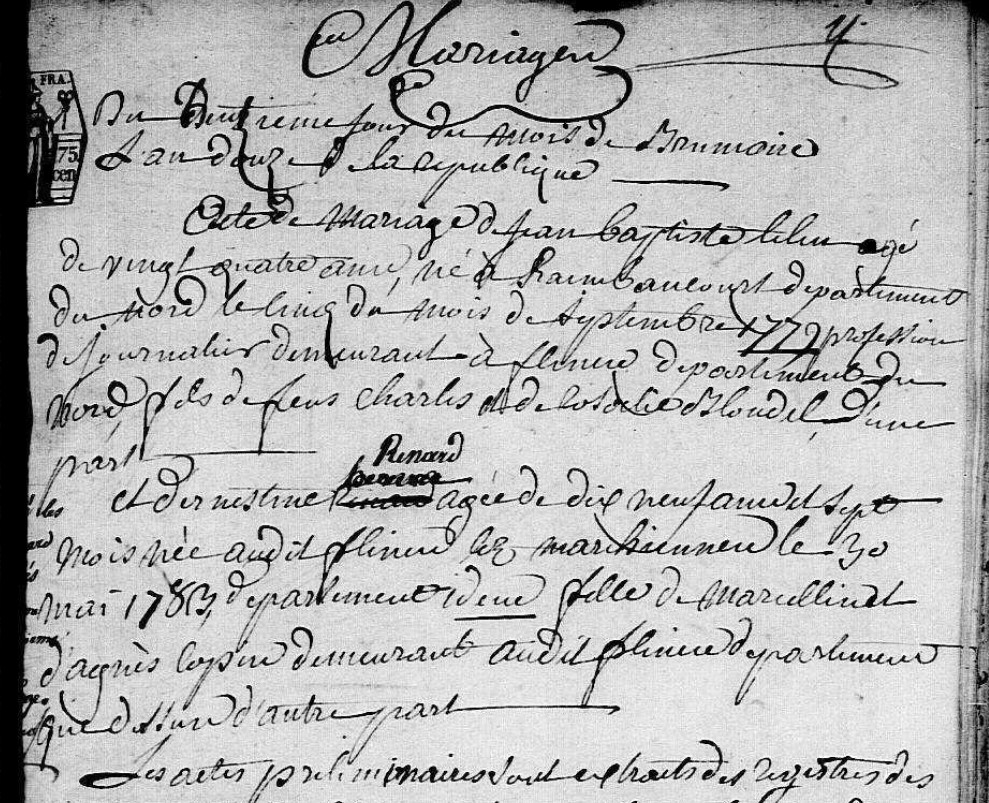 Mariages
4
FRA.
75
cen
Du huitieme jour du mois de Brumaire
L'an douze de la republique
Acte de Mariage de jean baptiste agé
de vingt quatre ans, né a Raimbaucourt departement
du nord le cinq du mois de septembre 1779 profession
de journalier demeurant a flines departement du
nord, fils de feus Charles et de Blondel, d'une
part
Renard
et d'ernestine agée de dix neuf ans et sept
mois née audit flines lez marchiennes le 30
mai 1783, departement idem fille de Marcellin et
d'agnès demeurant audit flines departement
que dessus d'autre part
Les actes preliminaires sont extraits des registres des